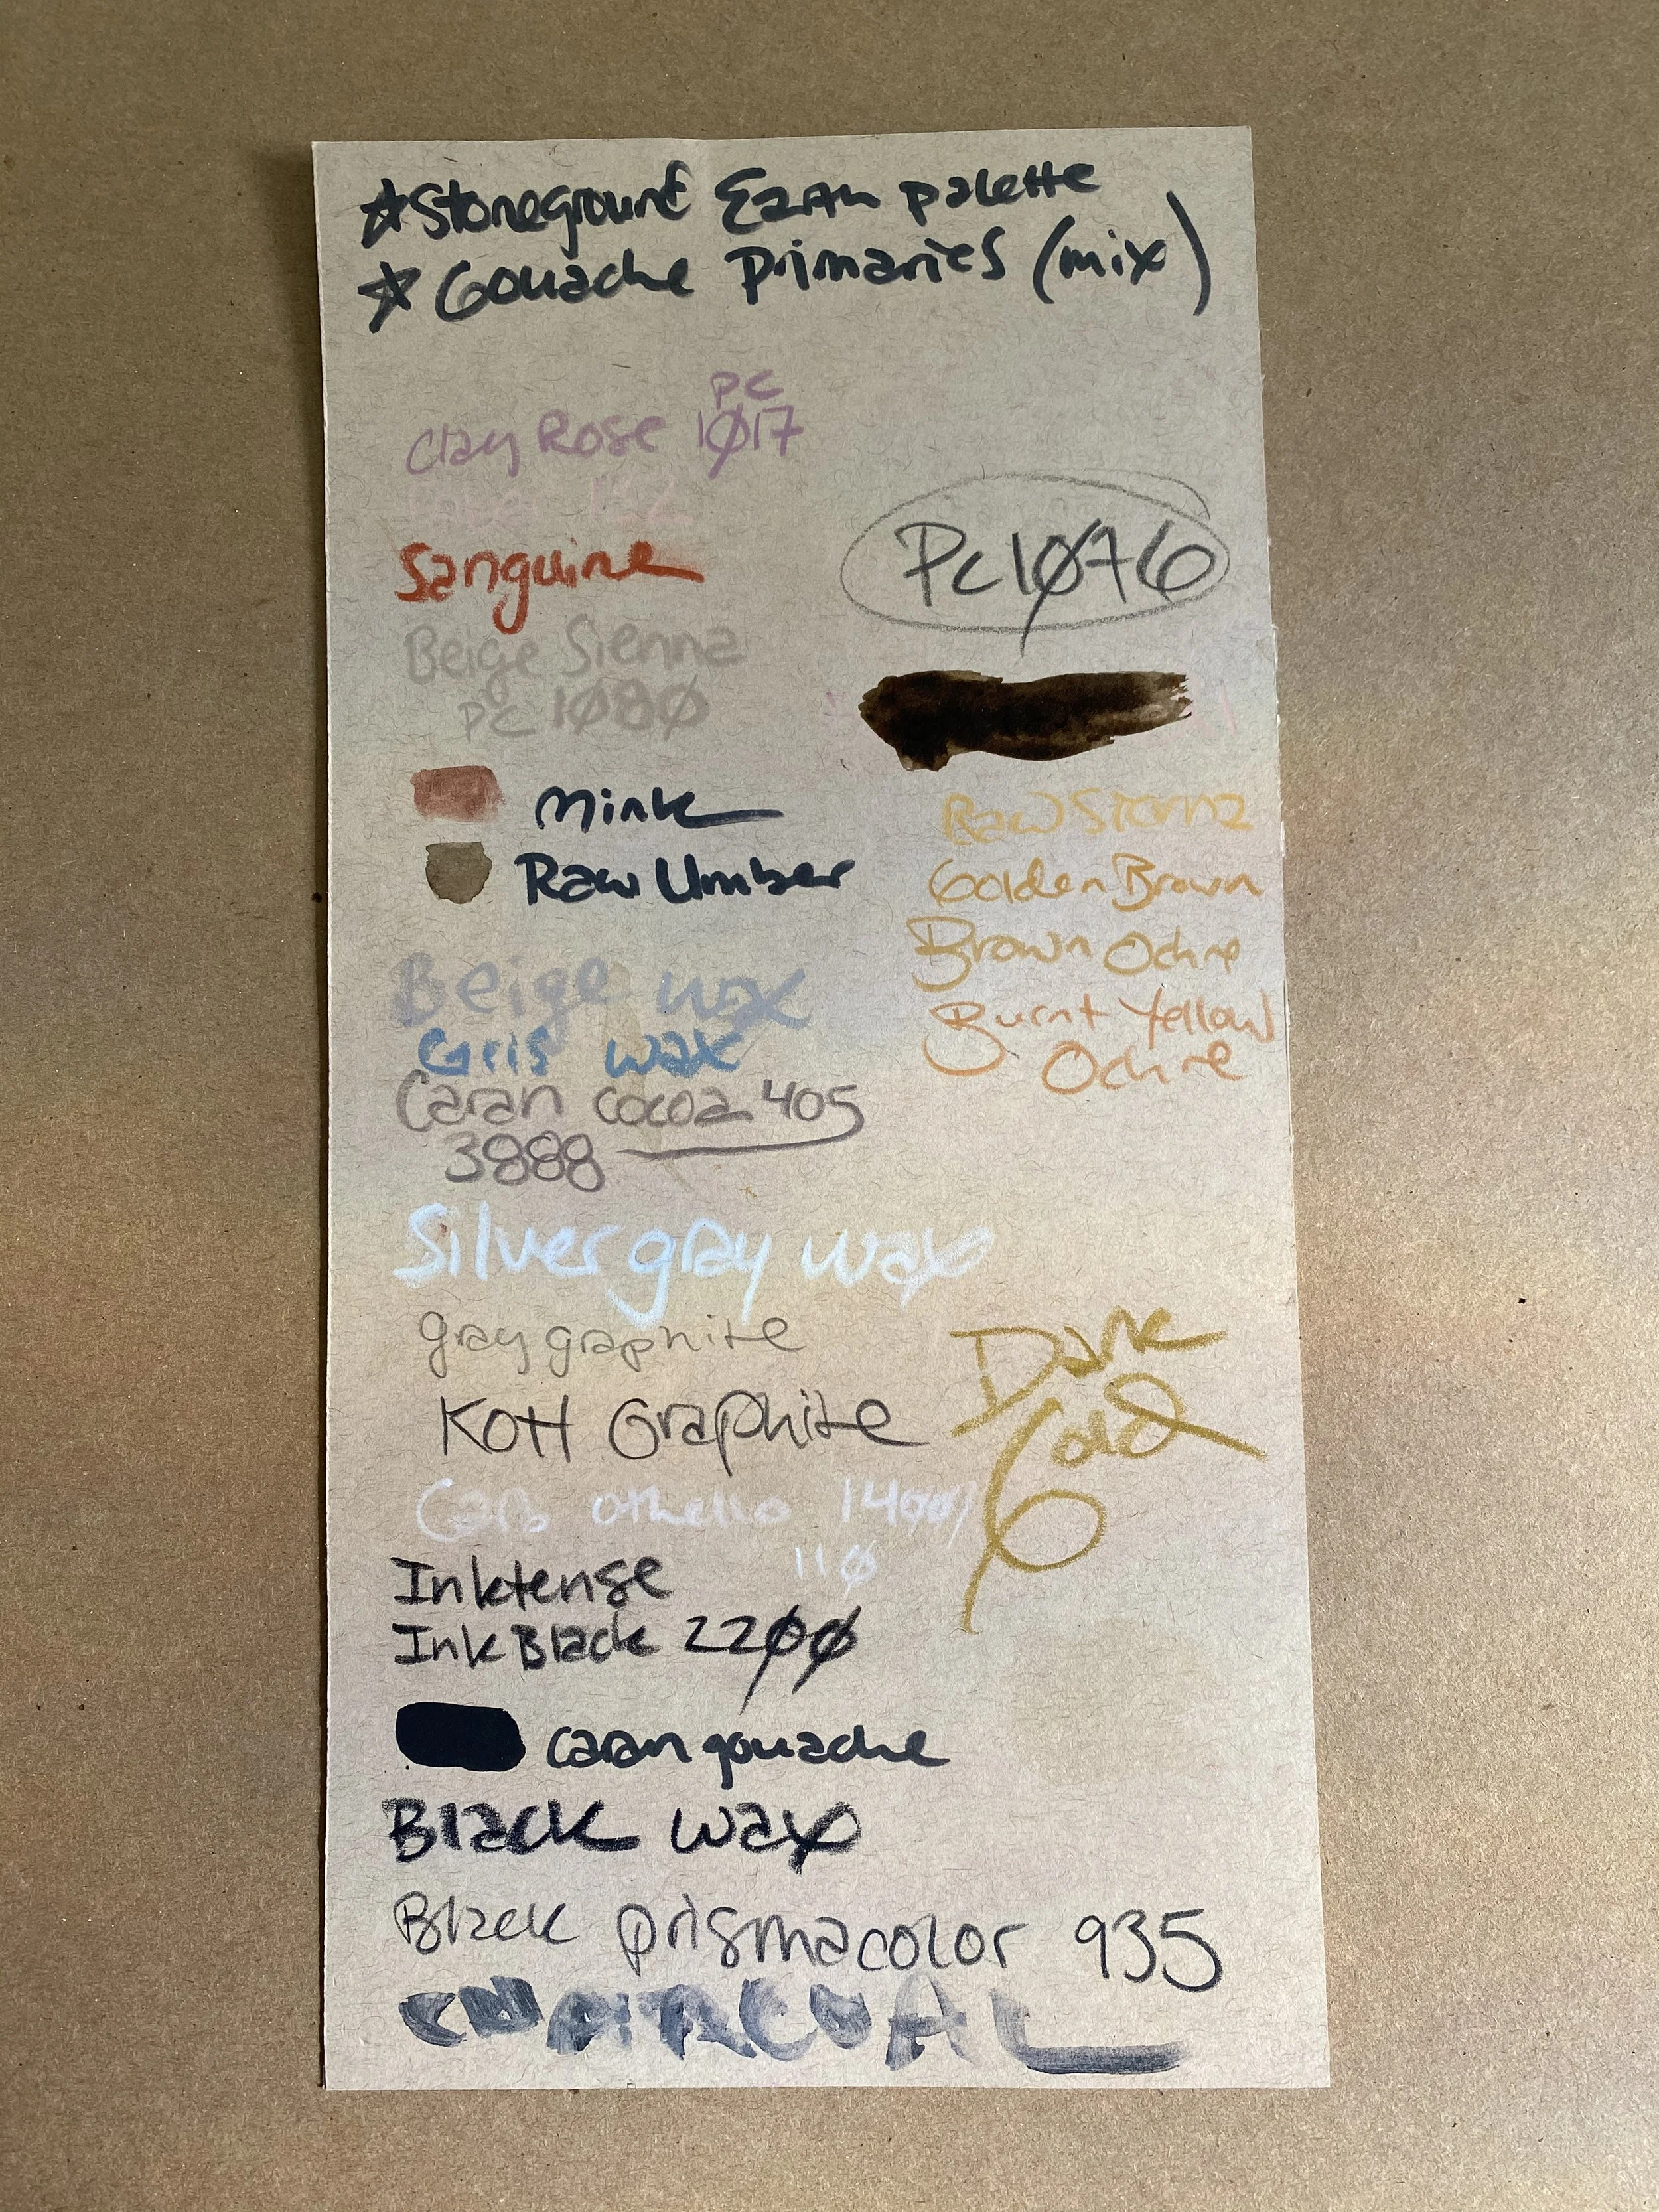 ☆ Stoneground Earth palette
☆ Gouache Primaries (mix)
PC
Clay Rose 1017
132
Sanguine
PC1076
Beige Sienna
PC 1080
Mink
Raw Umber
Raw Sienna
Golden Brown
Brown Ochre
Burnt Yellow
Ochre
Beige wax
Gris wax
Caran cocoa 405
3888
Silver gray wax
gray graphite
Dark
Gold
KOH Graphite
Carb othello 1400/
110
Inktense
Ink Black 2200
caran gouache
Black wax
Black prismacolor 935
CHARCOAL